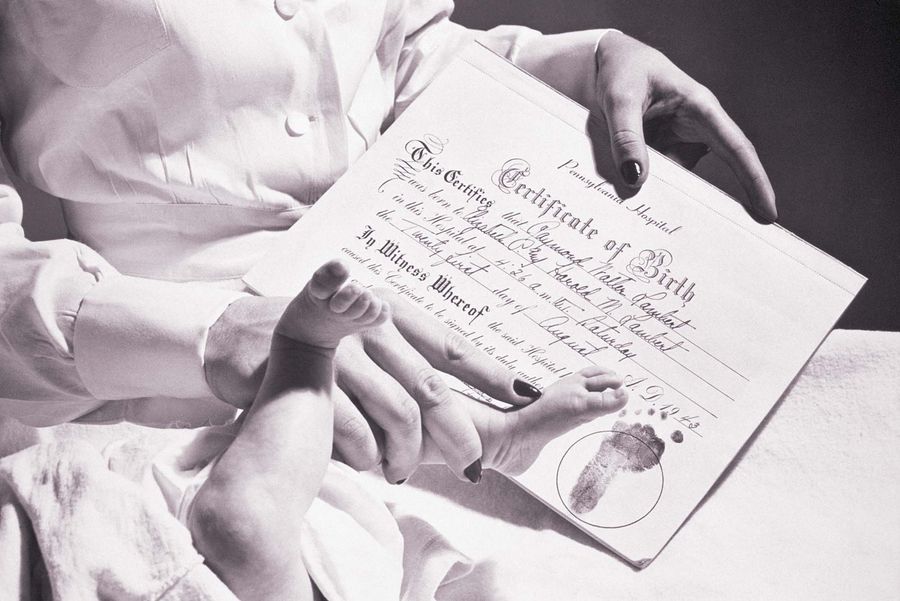 Pennsylvania Hospital
Certificate of Birth
This Certifies that Raymond Walter Lambert
was born to Elizabeth Harold M. Lambert
in this Hospital at 4:26 a.m. Saturday
the Twenty first day of August A.D. 1943
In Witness Whereof the said Hospital
caused this Certificate to be signed by its duly